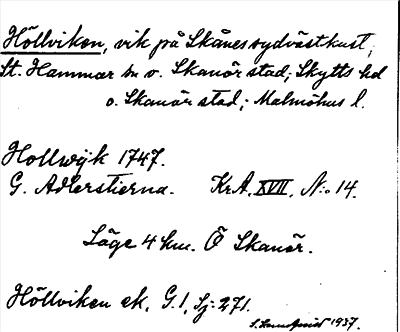 Höllviken, vik på Skånes sydvästkust,
St. Hammar sn o. Skanör stad; Skytts hd
o. Skanör stad; Malmöhus l.
Hollwijk 1747.
G. Adlerstierna. KrA. XVII. N:o 14.
Läge 4 km. Ö Skanör.
Höllviken ek. G.1, Sj: 271.
1937.